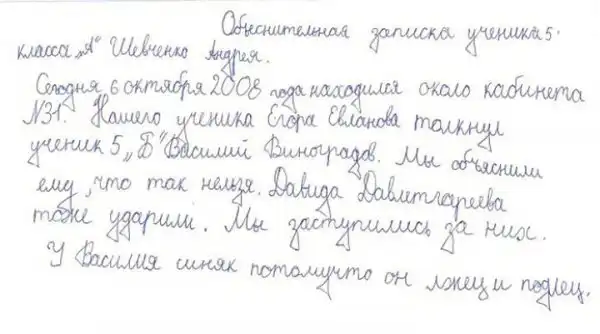 Объяснительная записка ученика 5
класса „А" Шевченко Андрея.
Сегодня 6 октября 2008 года находился около кабинета
N31. Нашего ученика Егора Евланова толкнул
ученик 5 „Б" Василий Виноградов. Мы объяснили
ему, что так нельзя. Давида Давлетгареева
тоже ударили. Мы заступились за них.
У Василия синяк потомучто он лжец и подлец.